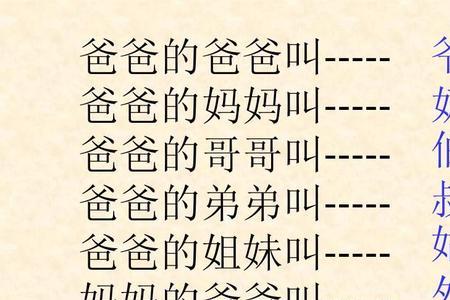 爸爸的爸爸叫-----
爸爸的妈妈叫-----
爸爸的哥哥叫-----
爸爸的弟弟叫-----
爸爸的姐妹叫-----
妈妈的爸爸叫-----